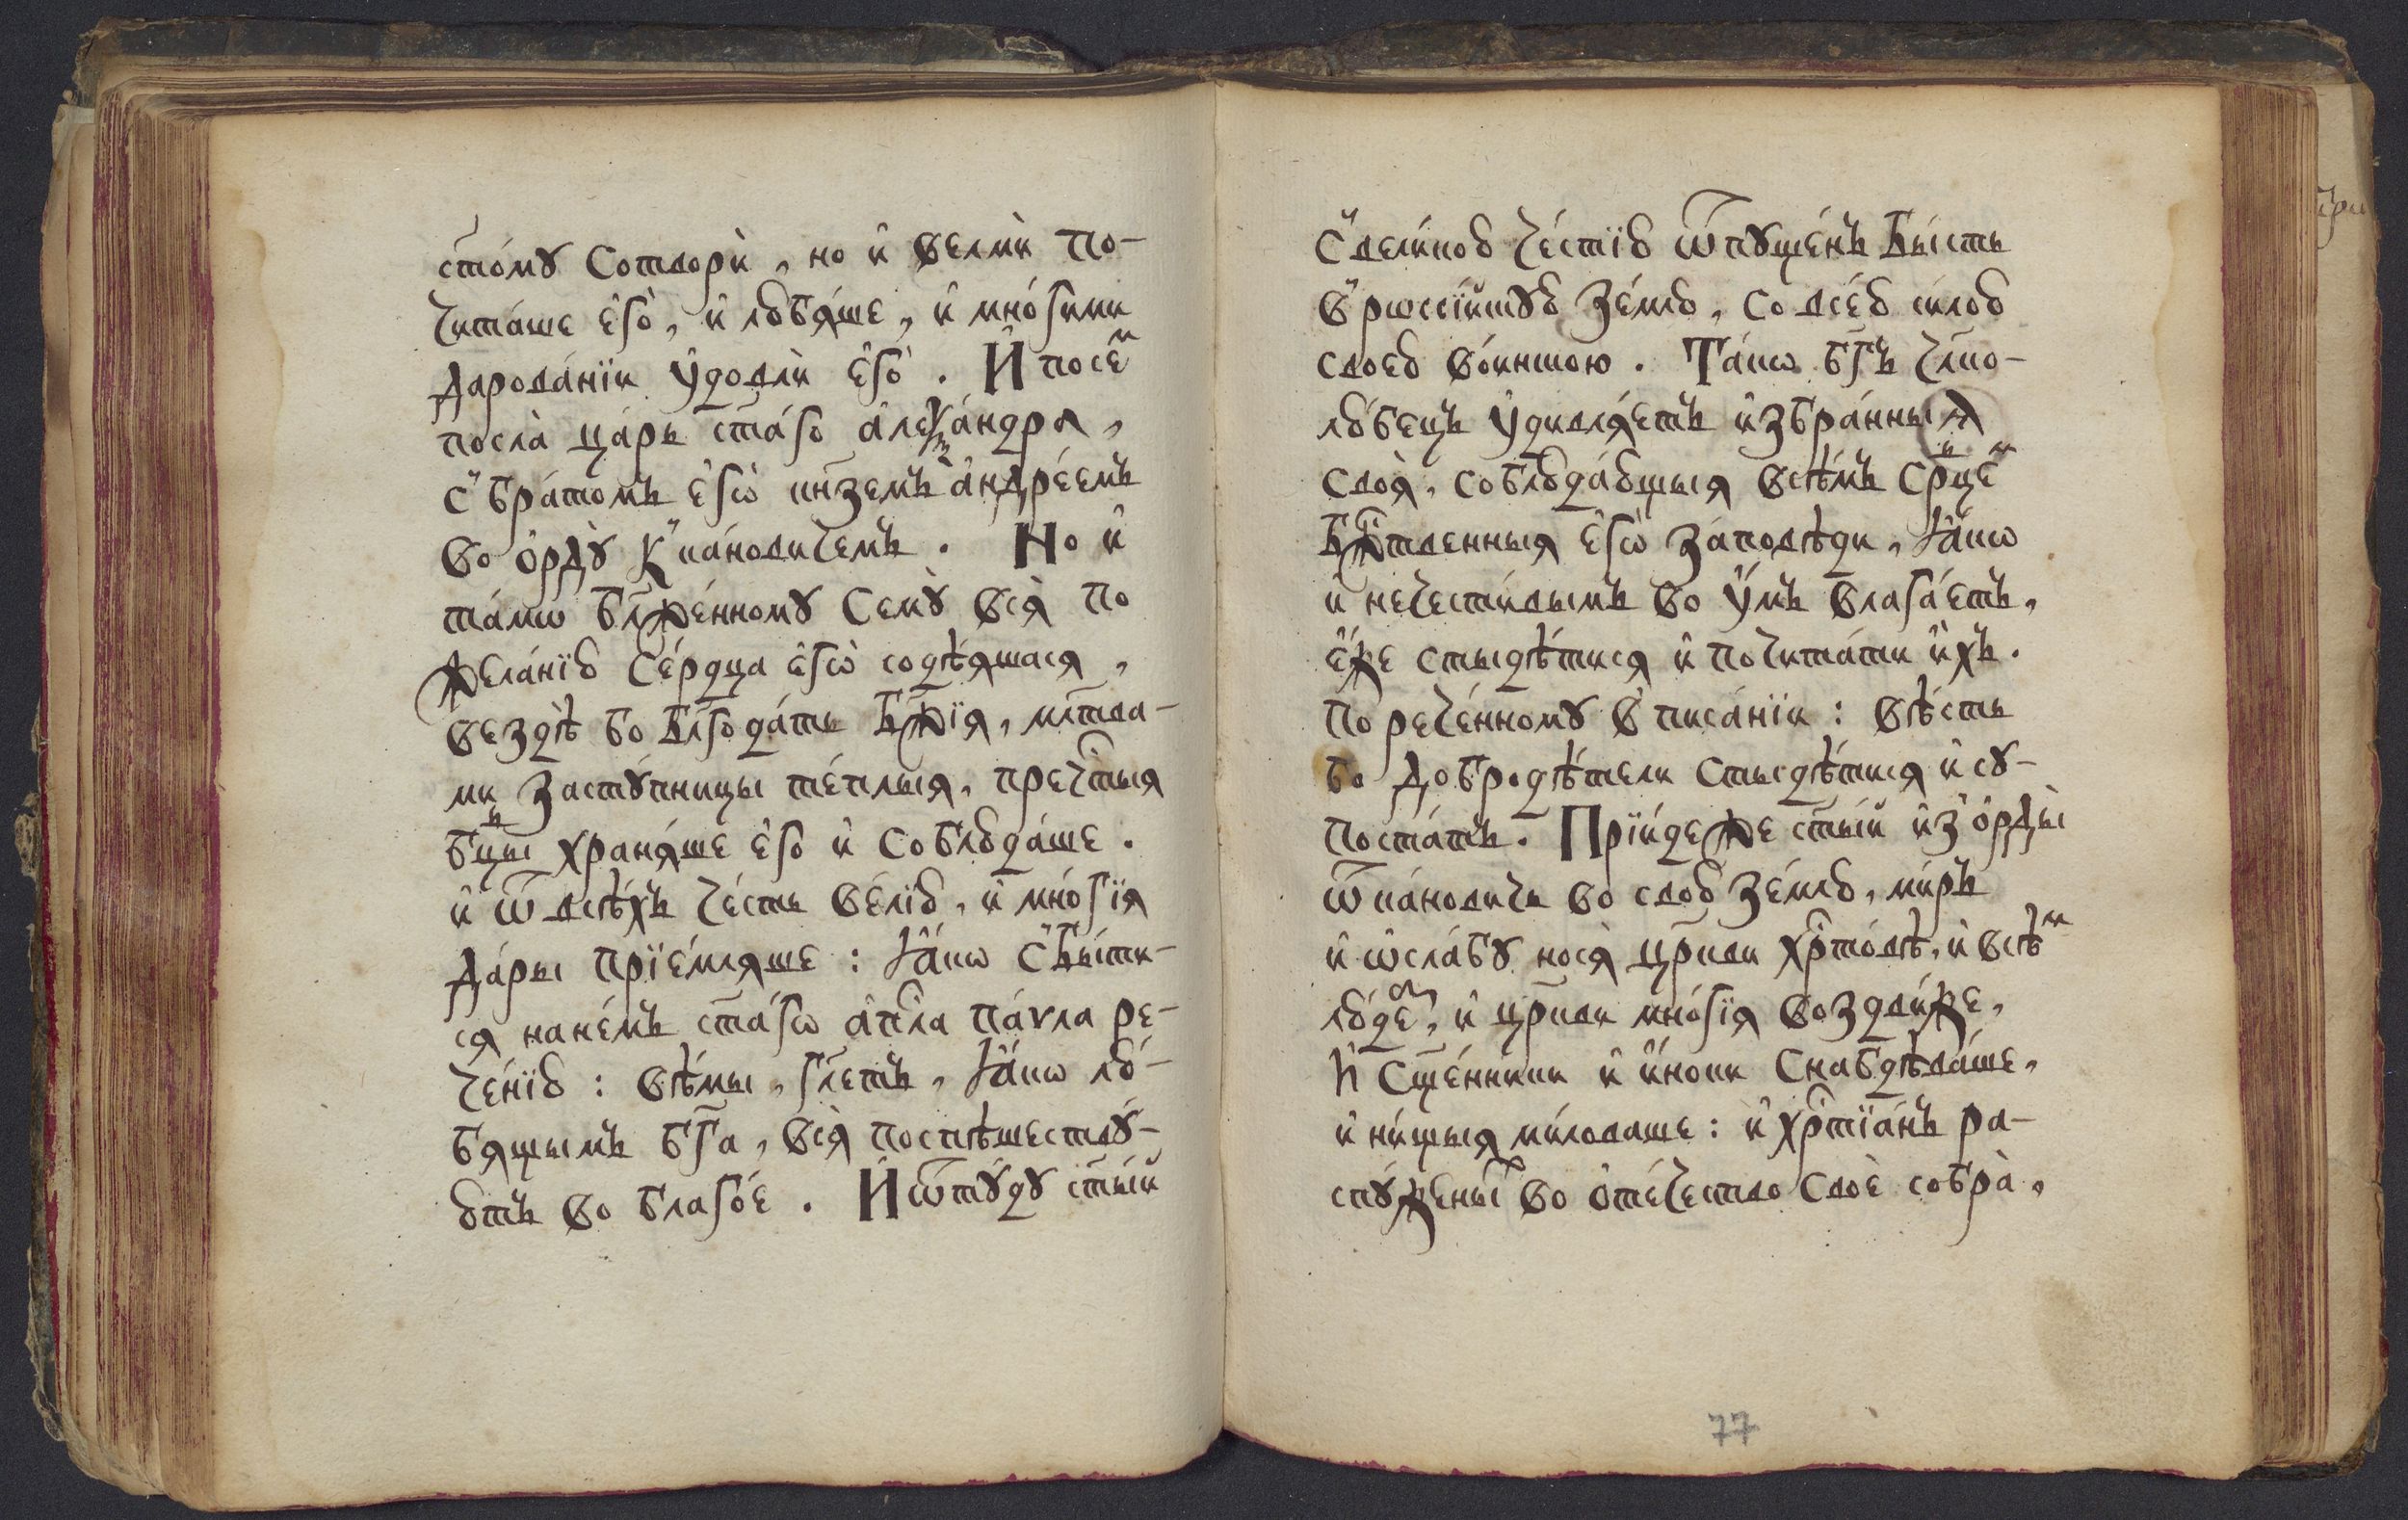 сто́мꙋ Сотворѝ, но и҆ вельмѝ по-
чита́ше є҆го̀, и҆ любѧ́ше, и҆ мно́гими
дарова́нїи ᲂу҆довлѝ є҆го̀. И҆ посе́м
посла̀ ца́рь ст҃а́го а҆леѯа́ндра,
с̾ бра́томъ є҆гѡ̀ кн҃земъ а҆ндре́емъ
во ѻ҆рдꙋ̀ К̾ ка́новичемъ. Но и҆
та́мѡ бл҃же́нномꙋ Семꙋ̀ всѧ̀ по
жела́нїю Се́рдца є҆гѡ̀ содѣ́ѧшасѧ,
вездѣ̀ бо Бл҃года́ть Бж҃їѧ, мл҃тва-
ми Застꙋ́пницы те́плыѧ, пречⷭ҇тыѧ
бцⷣы хранѧ́ше є҆го̀ и҆ соблюда́ше.
и҆ ѿ всѣ́хъ че́сть ве́лїю, и҆ мнѡ́гїѧ
да́ры прїе́млѧше: Ꙗ҆́кѡ с̾бы́ти-
сѧ нане́мъ ст҃а́гѡ а҆пⷭ҇ла па́ѵла ре-
че́нїю: вѣ́мы, гл҃етъ, Ꙗ҆́кѡ лю́-
бѧщымъ бг҃а, всѧ̀ поспѣшествꙋ́-
ютъ во благо́е. И҆ ѿтꙋ́дꙋ ст҃ы́й
С̾ вели́кою че́стїю ѿпꙋще́нъ Бы́сть
в̾ рѡссі́йскꙋю Зе́млю, со все́ю си́лою
своею во́инскою. Та́кѡ бг҃ъ чл҃ко-
лю́бецъ ᲂу҆дивлѧ́етъ и҆збра́нныѧ
своѧ̀, соблюда́ющыѧ всѣ́мъ Срⷣцем
Бжⷭ҇твенныѧ є҆гѡ̀ за́повѣди, Ꙗ҆́кѡ
и҆ нечести́вымъ во ᲂу҆́мъ влага́етъ,
є҆́же стыдѣ́тисѧ и҆ почита́ти и҆̀хъ.
По рече́нномꙋ в̾ писа́нїи: вѣ́сть
бо добродѣ́тели стыдѣ́тисѧ и҆ сꙋ-
поста́тъ. Прїи́де же ст҃ы́й и҆з̾ ѻ҆рды̀
ѿ ка́новича во свою̀ зе́млю, ми́ръ
и҆ ѡ҆сла́бꙋ носѧ̀ цр҃кви хрⷭ҇то́вѣ, и҆ всѣ́м
лю́дем, и҆ цр҃кви мнѡ́гїѧ воздви́же,
И҆ Сщ҃е́нники и҆ и҆́ноки Снабдѣва́ше,
и҆ ни́щыѧ ми́ловаше: и҆ хрⷭ҇тїа́нъ ра-
спꙋ́жены во ѻ҆те́чество Своѐ собра̀,
77